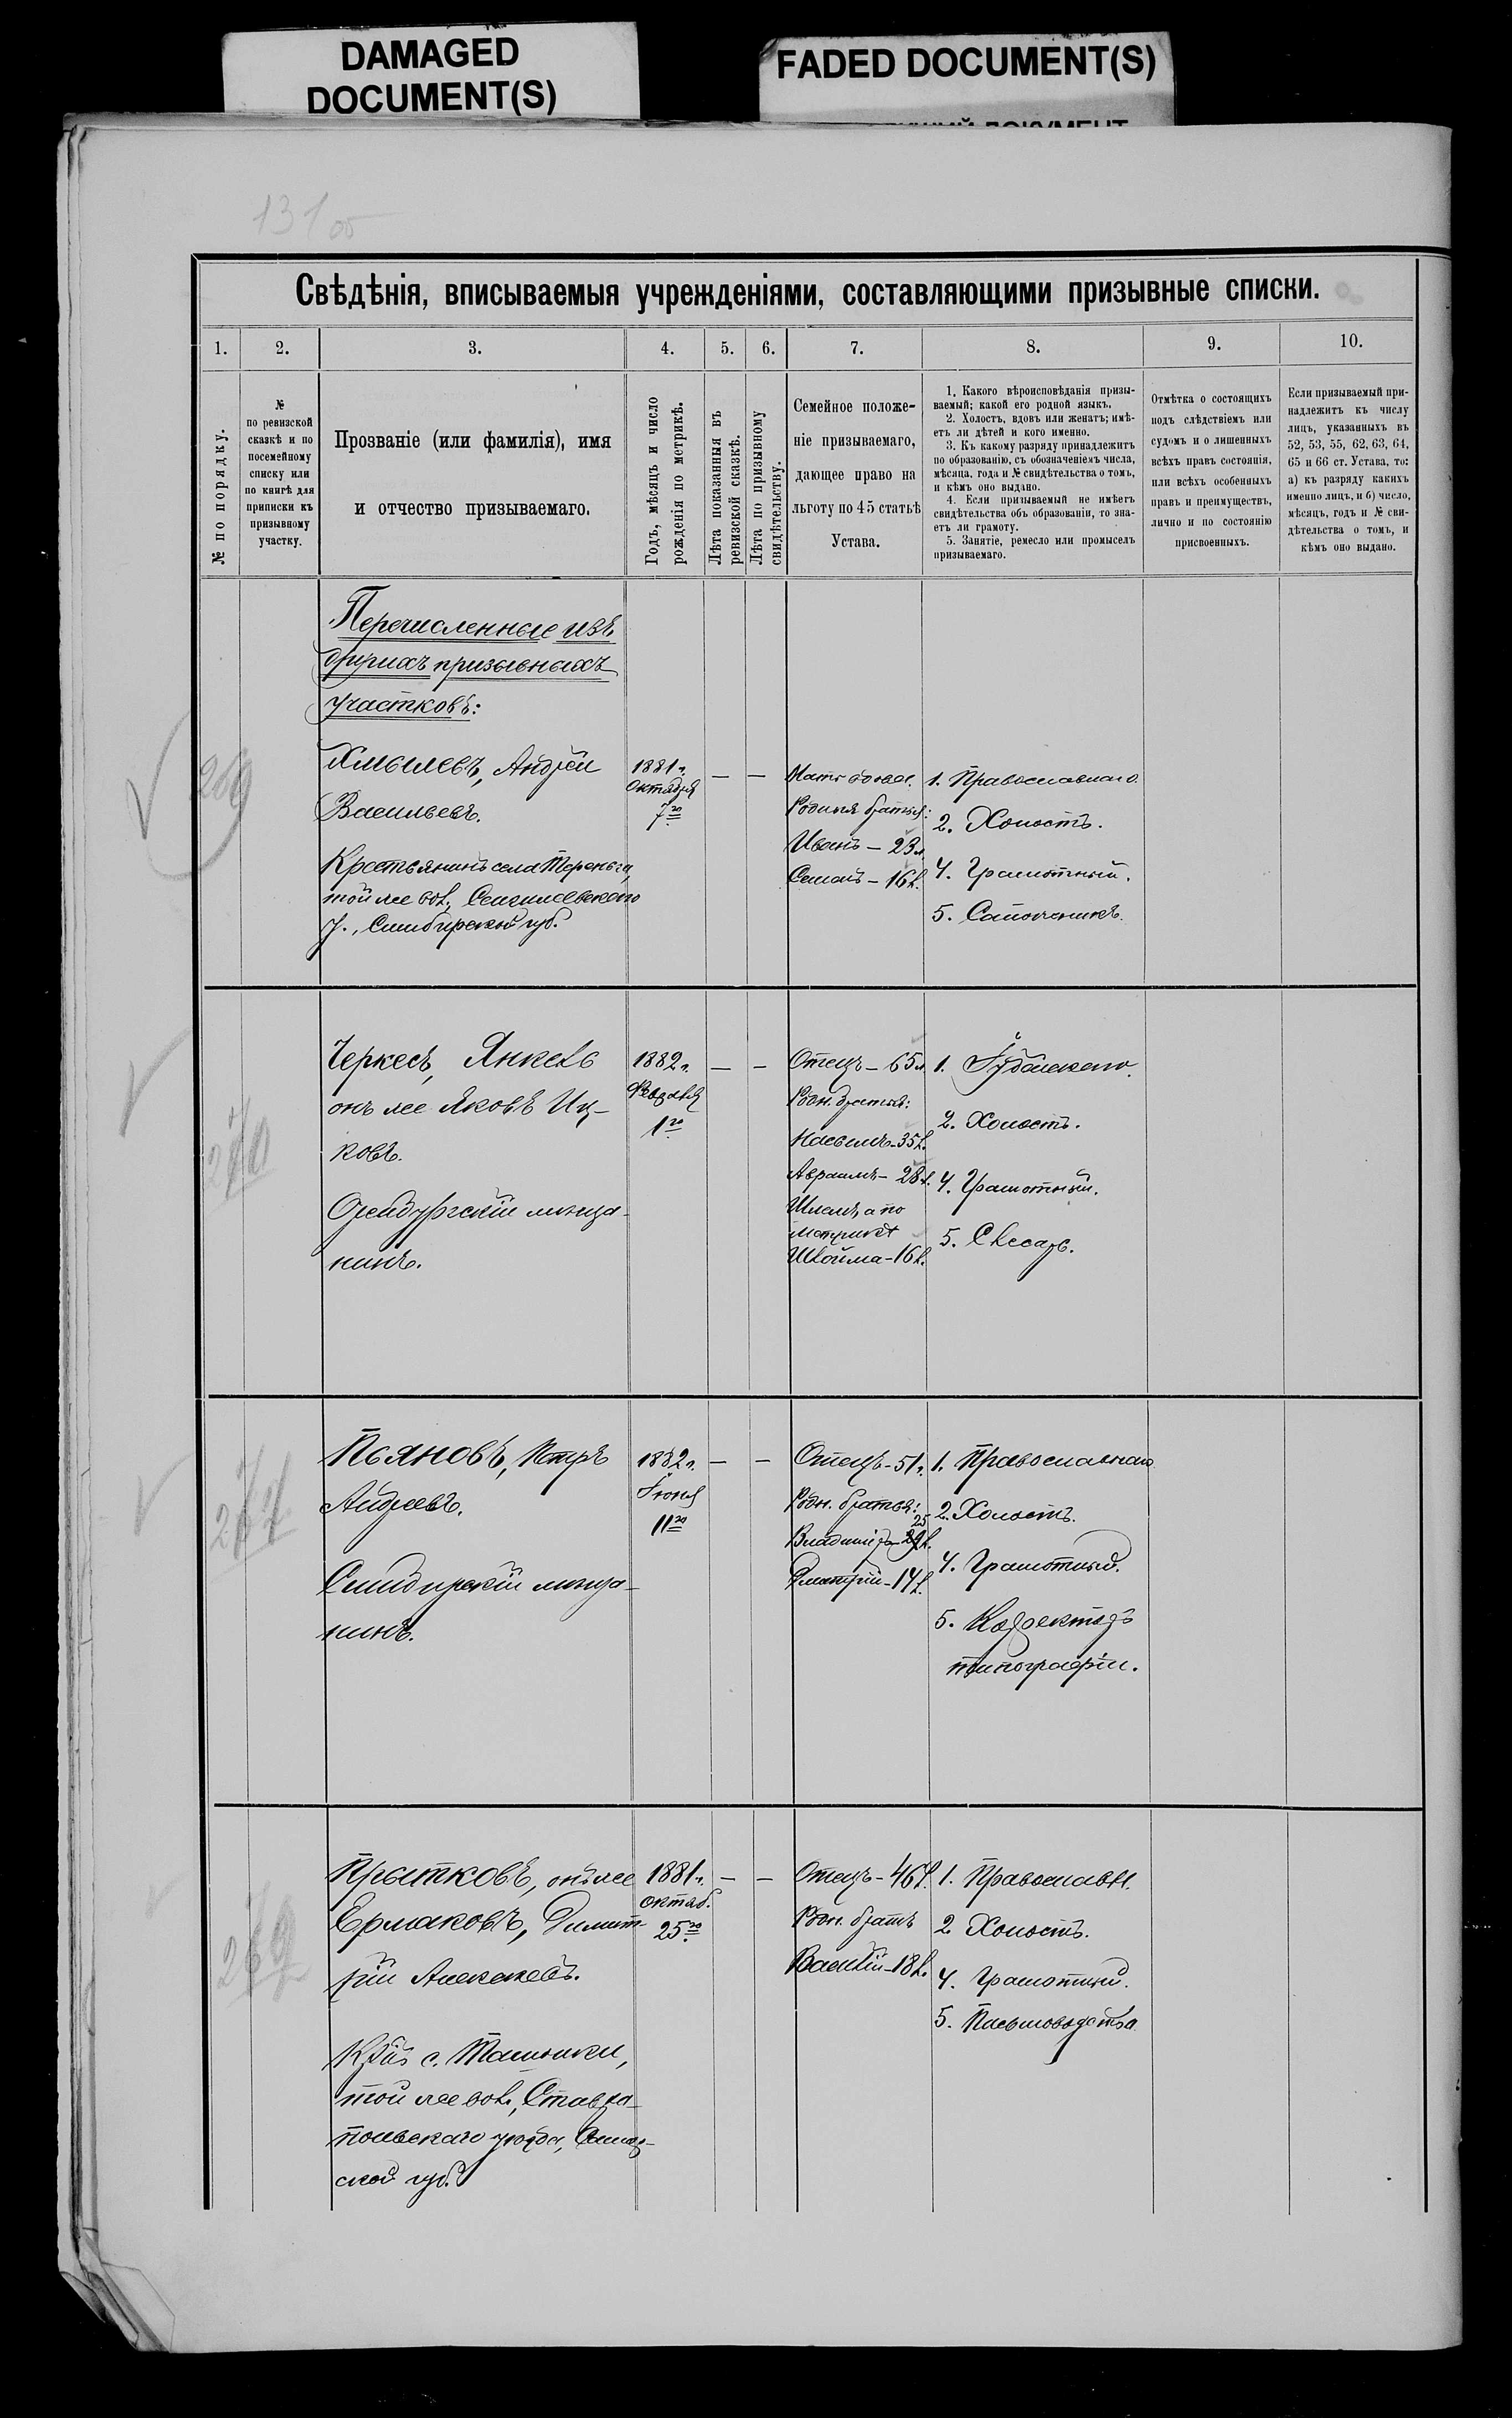 DAMAGED
DOCUMENT(S)
FADED DOCUMENT(S)
131 об
Свѣдѣнія, вписываемыя учрежденіями, составляющими призывные списки.
1.
2.
3.
4.
5.
6.
7.
8.
9.
10.
№ по порядку.
№
по ревизской
сказкѣ и по
посемейному
списку или
по книгѣ для
приписки къ
призывному
участку.
Прозваніе (или фамилія), имя
и отчество призываемаго.
Годъ, мѣсяцъ и число
рожденія по метрикѣ.
Лѣта показанныя въ
ревизской сказкѣ.
Лѣта по призывному
свидѣтельству.
Семейное положе-
ніе призываемаго,
дающее право на
льготу по 45 статьѣ
Устава.
1. Какого вѣроисповѣданія призы-
ваемый; какой его родной языкъ.
2. Холостъ, вдовъ или женатъ; имѣ-
етъ ли дѣтей и кого именно.
3. Къ какому разряду принадлежитъ
по образованію, съ обозначеніемъ числа,
мѣсяца, года и № свидѣтельства о томъ,
и кѣмъ оно выдано.
4. Если призываемый не имѣетъ
свидѣтельства объ образованіи, то зна-
етъ ли грамоту.
5. Занятіе, ремесло или промыселъ
призываемаго.
Отмѣтка о состоящихъ
подъ слѣдствіемъ или
судомъ и о лишенныхъ
всѣхъ правъ состоянія,
или всѣхъ особенныхъ
правъ и преимуществъ,
лично и по состоянію
присвоенныхъ.
Если призываемый при-
надлежитъ къ числу
лицъ, указанныхъ въ
52, 53, 55, 62, 63, 64,
65 и 66 ст. Устава, то:
а) къ разряду какихъ
именно лицъ, и б) число,
мѣсяцъ, годъ и № сви-
дѣтельства о томъ, и
кѣмъ оно выдано.
Перечисленные изъ
другихъ призывныхъ
участковъ:
Хмылевъ, Андрей
Васильевъ.
Крестьянинъ села Тереньги,
той же вол., Сенгилеевскаго
у., Симбирской губ.
1881 г.
Октября
7го
—
—
Мать вдова.
Родные братья:
Иванъ — 23 л.
Семенъ — 16 л.
1. Православнаго.
2. Холостъ.
4. Грамотный.
5. Сапожникъ.
Черкесъ, Янкель
онъ же Яковъ Иц-
ковъ.
Оренбургскій мѣща-
нинъ.
1882 г.
Февраля
1го
—
—
Отецъ — 65 л.
Родн. братья:
35 л.
Авраамъ — 28 л.
а по
метрикѣ
Шлойма — 16 л.
1. Іудейскаго.
2. Холостъ.
4. Грамотный.
5. Слесарь.
Пьяновъ, Петръ
Андреевъ.
Симбирскій мѣща-
нинъ.
1882 г.
Іюня
11го
—
—
Отецъ — 51 г.
Родн. братья:
25
Владиміръ — л.
Дмитрій — 14 л.
1. Православнаго
2. Холостъ.
4. Грамотный.
5. Корректоръ
типографіи.
Прытковъ, онъ же
Ермаковъ, Димит-
рій Алексѣевъ.
Кр-нъ с. Ташолки,
той же вол., Ставро-
польскаго уѣзда, Самар-
ской губ.
1881 г.
октяб.
25го
—
—
Отецъ — 46 л.
Родн. братъ
Василій — 18 л.
1. Православн.
2. Холостъ.
4. Грамотный.
5. Письмоводства